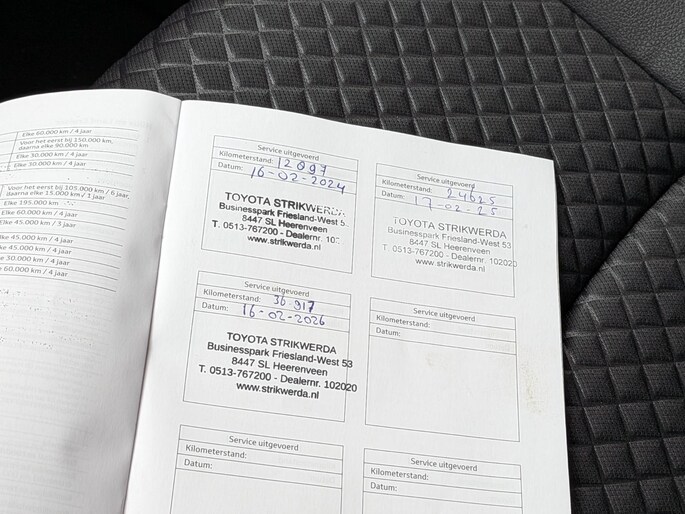 Elke 60.000 km / 4 jaar
Voor het eerst bij 150.000 km,
daarna elke 90.000 km
Elke 30.000 km / 4 jaar
Elke 30.000 km / 4 jaar
Voor het eerst bij 105.000 km / 6 jaar,
daarna elke 15.000 km / 1 jaar
Elke 195.000 km
Elke 60.000 km / 4 jaar
Elke 45.000 km / 3 jaar
Elke 45.000 km / 4 jaar
Elke 45.000 km / 4 jaar
Elke 30.000 km / 4 jaar
60.000 km / 4 jaar
Service uitgevoerd
Kilometerstand: 12897
Datum: 16-02-2024
TOYOTA STRIKWERDA
Businesspark Friesland-West 5
8447 SL Heerenveen
T. 0513-767200 - Dealernr. 102
www.strikwerda.nl
Service uitgevoerd
Kilometerstand: 24625
Datum: 17-02-25
TOYOTA STRIKWERDA
Businesspark Friesland-West 53
8447 SL Heerenveen
T. 0513-767200 - Dealernr. 102020
www.strikwerda.nl
Service uitgevoerd
Kilometerstand: 36.917
Datum: 16-02-2026
TOYOTA STRIKWERDA
Businesspark Friesland-West 53
8447 SL Heerenveen
T. 0513-767200 - Dealernr. 102020
www.strikwerda.nl
Service uitgevoerd
Kilometerstand:
Datum:
Service uitgevoerd
Kilometerstand:
Datum:
Service uitgevoerd
Kilometerstand:
Datum: